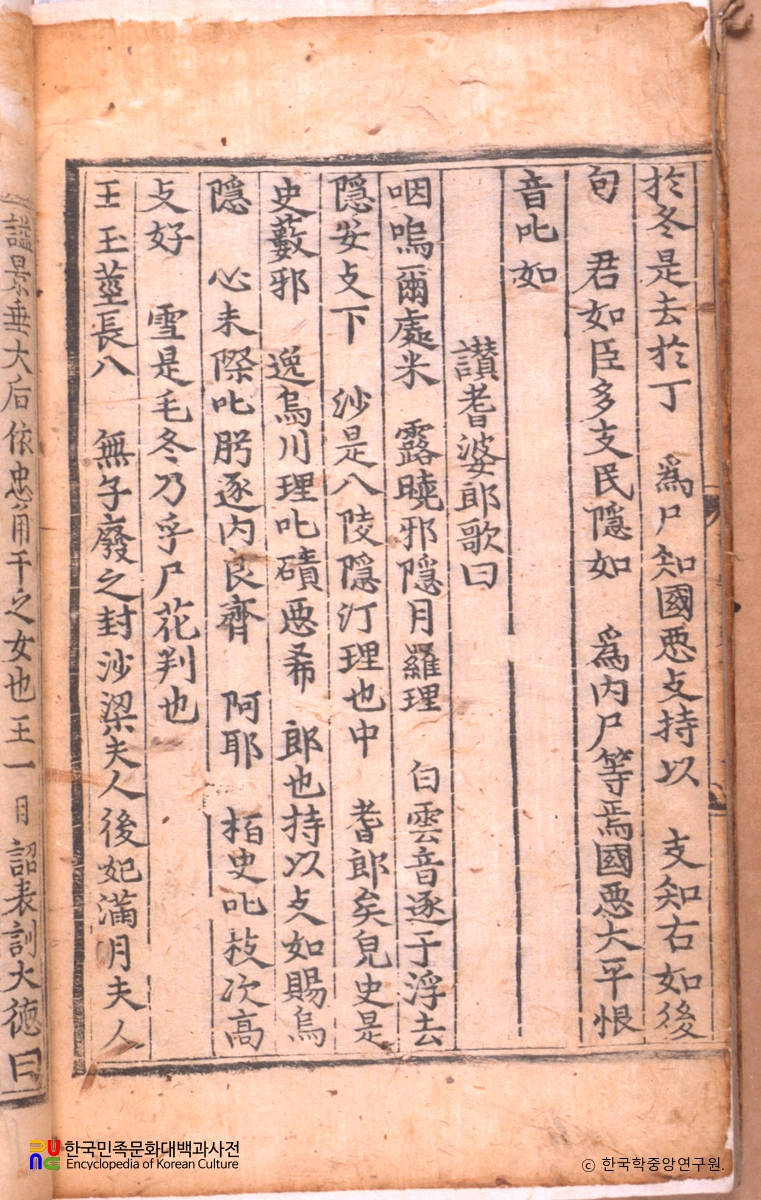 於冬是去於丁　爲尸知國惡攴持以　支知右如後
句　君如臣多支民隱如　爲內尸等焉國惡大平恨
音叱如
讃耆婆郎歌曰
咽嗚爾處米　露曉邪隱月羅理　白雲音逐于浮去
隱安攴下　沙是八陵隱汀理也中　耆郎矣皃史是
史藪邪　逸烏川理叱磧惡希　郎也持以攴如賜烏
隱　心未際叱肹逐內良齊　阿耶　栢史叱枝次高
攴好　雪是毛冬乃乎尸花判也
王玉莖長八　無子廢之封沙梁夫人後妃滿月夫人
諡景垂大后依忠角干之女也王一日詔表訓大德曰
한국민족문화대백과사전
Encyclopedia of Korean Culture
© 한국학중앙연구원.